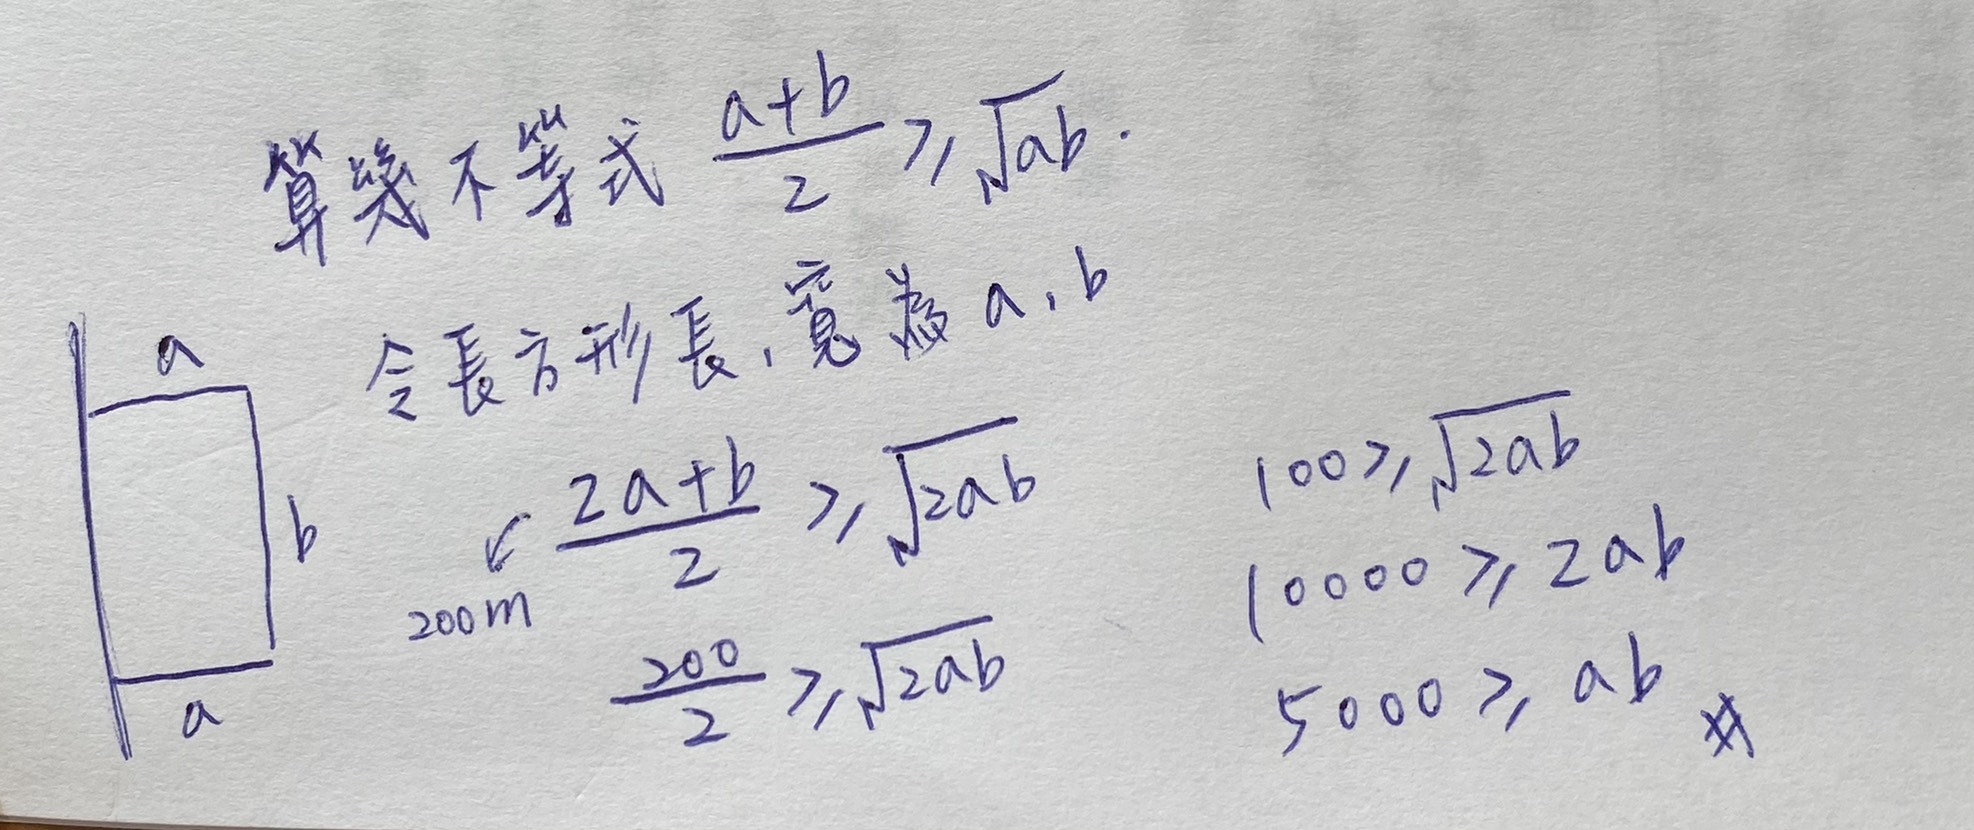 算幾不等式 (a+b)/2 ≥ √ab.
令長方形長,寬為 a,b
a
b
a
(2a+b)/2 ≥ √2ab
200m
200/2 ≥ √2ab
100 ≥ √2ab
10000 ≥ 2ab
5000 ≥ ab #